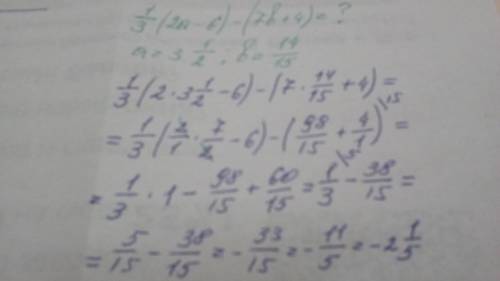 1/3 (2a - 6) - (7b + 4) = ?
a = 3 1/2 ; b = 14/15
1/3 (2 · 3 1/2 - 6) - (7 · 14/15 + 4) =
= 1/3 (2/1 · 7/2 - 6) - (98/15 + 4/1 \15) =
= 1/3 · 1 - 98/15 + 60/15 = 1/3 \5 - 38/15 =
= 5/15 - 38/15 = - 33/15 = - 11/5 = - 2 1/5